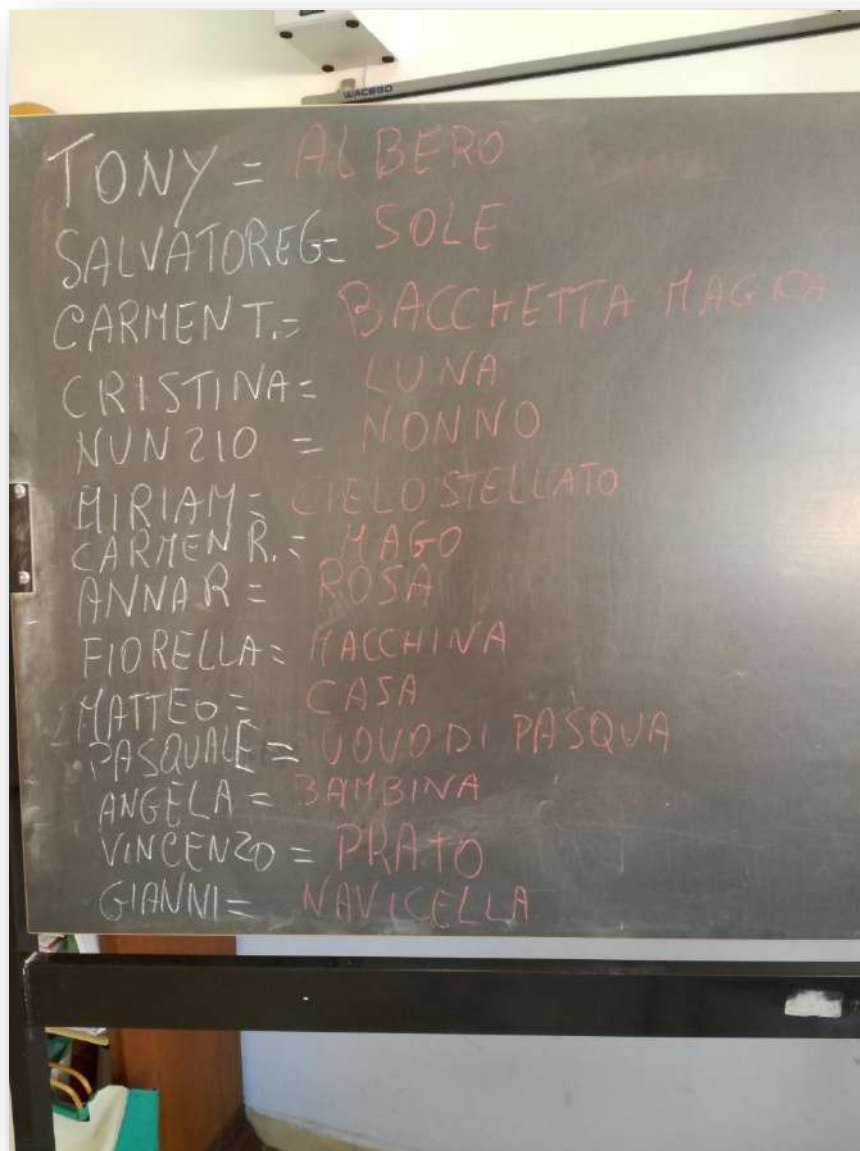 WACEBO
TONY = ALBERO
SALVATORE G= SOLE
CARMEN T.= BACCHETTA MAGICA
CRISTINA= LUNA
NUNZIO = NONNO
MIRIAM= CIELO STELLATO
CARMEN R.= MAGO
ANNA R = ROSA
FIORELLA= MACCHINA
MATTEO= CASA
PASQUALE= UOVO DI PASQUA
ANGELA= BAMBINA
VINCENZO = PRATO
GIANNI= NAVICELLA